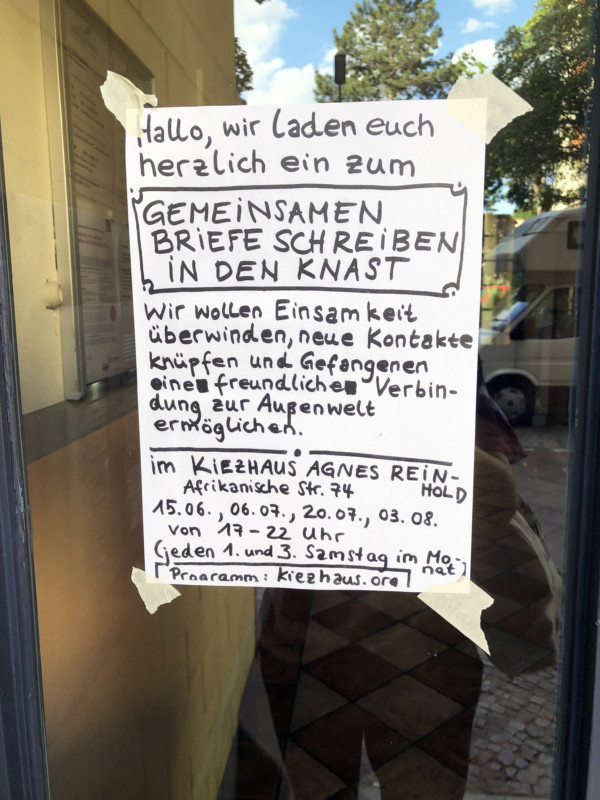 Hallo, wir laden euch
herzlich ein zum
GEMEINSAMEN
BRIEFE SCHREIBEN
IN DEN KNAST
Wir wollen Einsamkeit
überwinden, neue Kontakte
knüpfen und Gefangenen
eine freundliche Verbin-
dung zur Außenwelt
ermöglichen.
im KIEZHAUS AGNES REIN-
HOLD
Afrikanische Str. 74
15.06., 06.07., 20.07., 03.08.
von 17-22 Uhr
(jeden 1. und 3. Samstag im Mo-
nat)
Programm: kiezhaus.org